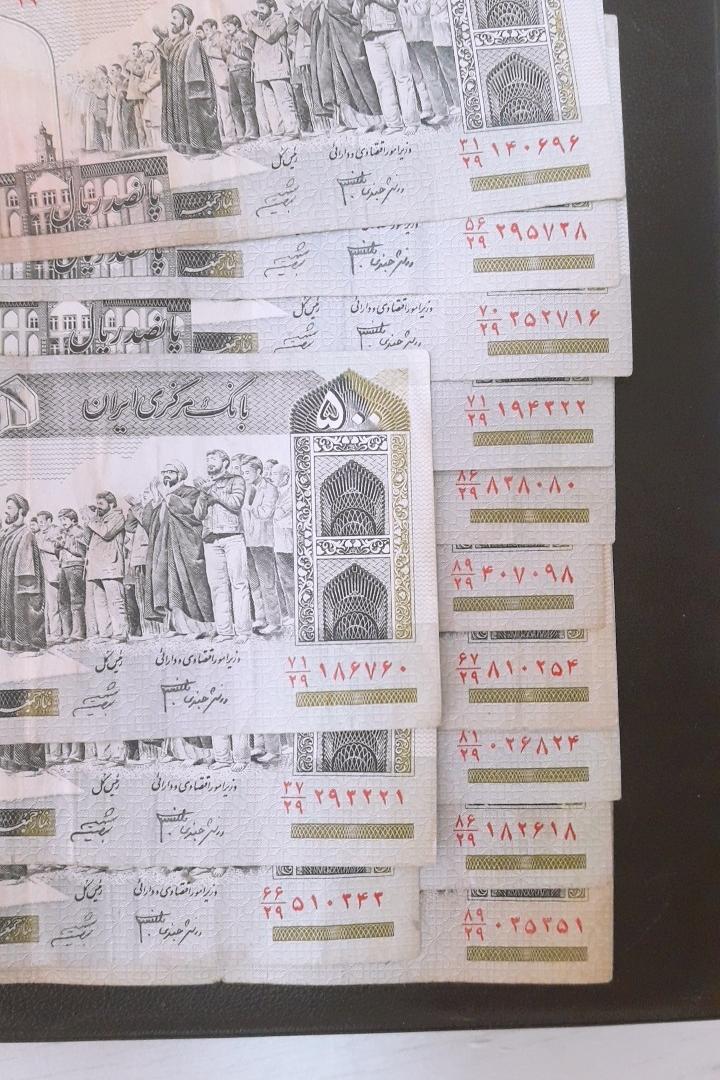 رئیس کل وزیر امور اقتصادی و دارائی ۳۱/۲۹ ۱۴۰۶۹۶
پانصد ریال
۵۶/۲۹ ۲۹۵۷۲۸
رئیس کل وزیر امور اقتصادی و دارائی ۷۰/۲۹ ۳۵۲۷۱۶
پانصد ریال
بانک مرکزی ایران ۵۰۰
۷۱/۲۹ ۱۹۴۳۲۲
۸۶/۲۹ ۸۳۸۰۸۰
۸۹/۲۹ ۴۰۷۰۹۸
رئیس کل وزیر امور اقتصادی و دارائی ۷۱/۲۹ ۱۸۶۷۶۰
۶۷/۲۹ ۸۱۰۲۵۴
۸۱/۲۹ ۰۲۶۸۲۴
رئیس کل وزیر امور اقتصادی و دارائی ۳۷/۲۹ ۲۹۳۲۲۱
۸۶/۲۹ ۱۸۲۶۱۸
رئیس کل وزیر امور اقتصادی و دارائی ۶۶/۲۹ ۵۱۰۳۴۲
۸۹/۲۹ ۰۳۵۳۵۱